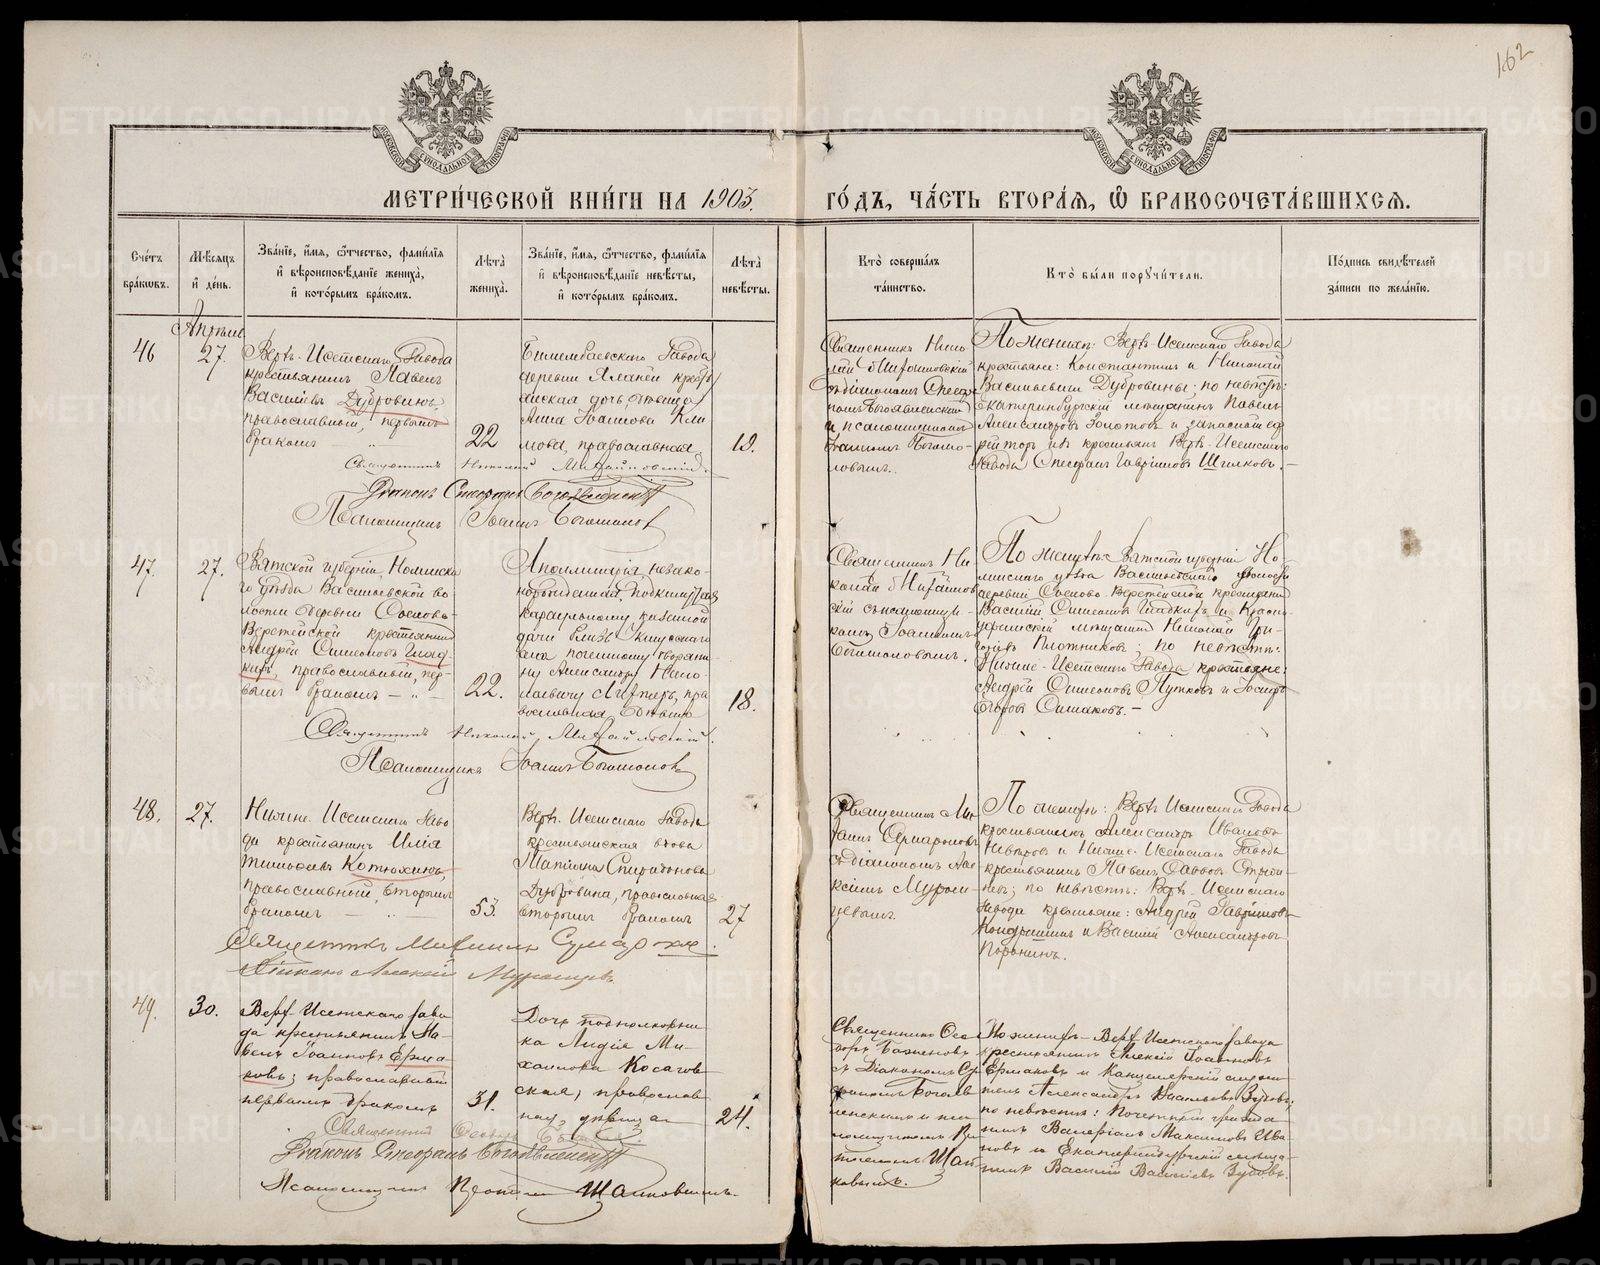 162
МЕТРИ́ЧЕСКОЙ КНИ́ГИ НА 1903. ГО́ДЪ, ЧА́СТЬ ВТОРА́Я, Ѡ҆ БРАКОСОЧЕТА́ВШИХСЯ.
Сче́тъ бра́ковъ.
Мѣ́сяцъ и҆ де́нь.
Зва́нїе, и҆́мя, ѻ҆́тчество, фами́лїя
и҆ вѣроисповѣ́данїе жениха̀,
и҆ кото́рымъ бра́комъ.
Лѣта̀ жениха̀.
Зва́нїе, и҆́мя, ѻ҆́тчество, фами́лїя
и҆ вѣроисповѣ́данїе невѣ́сты,
и҆ кото́рымъ бра́комъ.
Лѣта̀ невѣ́сты.
Кто̀ соверша́лъ та́инство.
Кто̀ бы́ли порꙋчи́тели.
По́дпись свидѣ́телей за́писи по жела́нїю.
Апрѣль
46
27.
Верхъ-Исетскаго Завода
крестьянинъ Павелъ
Васильевъ Дубровинъ,
православный, первымъ
бракомъ
22
Билимбаевскаго Завода
деревни
Анна Іоаннова Кли
мова, православная,
19.
Священникъ Нико
лай Михайловскій
съ діакономъ
Богоявленскимъ
и псаломщикомъ
Іоанномъ Богомо-
ловымъ.
По женихѣ: Верхъ-Исетскаго Завода
крестьяне: Константинъ и Николай
Васильевы Дубровины; по невѣстѣ:
Екатеринбургскій мѣщанинъ Павелъ
Александровъ Золотовъ и запасный еф
рейторъ изъ крестьянъ Верхъ-Исетскаго
Завода Гавріиловъ Шилковъ.
Священникъ Николай Михайловскій.
Діаконъ Богоявленскій
Псаломщикъ Іоаннъ Богомоловъ
47.
27.
Вятской губерніи, Нолинска
го уѣзда Васильевской во
лости деревни
Веретейской крестьянинъ
Андрей Симеоновъ Глад-
кихъ, православный, пер-
вымъ бракомъ
22.
Аполлинарія, незако-
норожденная,
караульному казенной
дачи близь
почетному дворяни-
ну Александру Нико-
лаевичу пра
вославная,
18.
Священникъ Ни-
колай Михайловс
кій съ псаломщи-
комъ Іоанномъ
Богомоловымъ.
По женихѣ: Вятской губерніи Но-
линскаго уѣзда Васильевской волости
деревни Веретейской крестьянинъ
Василій Симеоновъ Гладкихъ и Красно-
уфимскій мѣщанинъ Николай
Плотниковъ; по невѣстѣ:
Нижне-Исетскаго Завода крестьяне:
Андрей Симеоновъ Путковъ и
Егоровъ Симаковъ.
Священникъ Николай Михайловскій.
Псаломщикъ Іоаннъ Богомоловъ
48.
27.
Нижне-Исетскаго Заво
да крестьянинъ Илія
Тимофеевъ Котюхинъ,
православный, вторымъ
бракомъ
53.
Верхъ-Исетскаго Завода
крестьянская вдова
Матрона Спиридонова
Дубровина, православная
вторымъ бракомъ
27
Священникъ Ми-
хаилъ
съ діакономъ Але
ксіемъ Муром-
цевымъ.
По женихѣ: Верхъ-Исетскаго Завода
крестьянинъ Александръ Ивановъ
и Нижне-Исетскаго Завода
крестьянинъ Павелъ Саввовъ
по невѣстѣ: Верхъ-Исетскаго
Завода крестьяне: Андрей Гавриловъ
Кондрашинъ и Василій Александровъ
Священникъ Михаилъ
Діаконъ Алексій Муромцевъ
49.
30.
Верх-Исетскаго заво
да крестьянинъ Па-
велъ Іоанновъ Ерма-
ковъ; православный
первымъ бракомъ
31.
Дочь подполковни
ка Лидія Ми-
хаилова Косагов-
ская, православ-
ная, дѣвица
24.
Священникъ Ѳео-
доръ Баженовъ
съ Діакономъ
Богояв
ленскимъ и пса
ломщикомъ
Шал
ковымъ.
По женихѣ - Верх-Исетскаго завода
крестьянинъ Алексій Іоанновъ
Ермаковъ и Канцелярскій служи
тель Александръ Васильевъ Зубовъ;
по невѣстѣ: Почетный гражда
нинъ Валеріанъ Максимовъ Ива
новъ и Екатеринбургскій мѣща
нинъ Василій Васильевъ Зубовъ.
Священникъ Ѳеодоръ
Діаконъ Богоявленскій
Псаломщикъ
METRIKI.GASO-URAL.RU